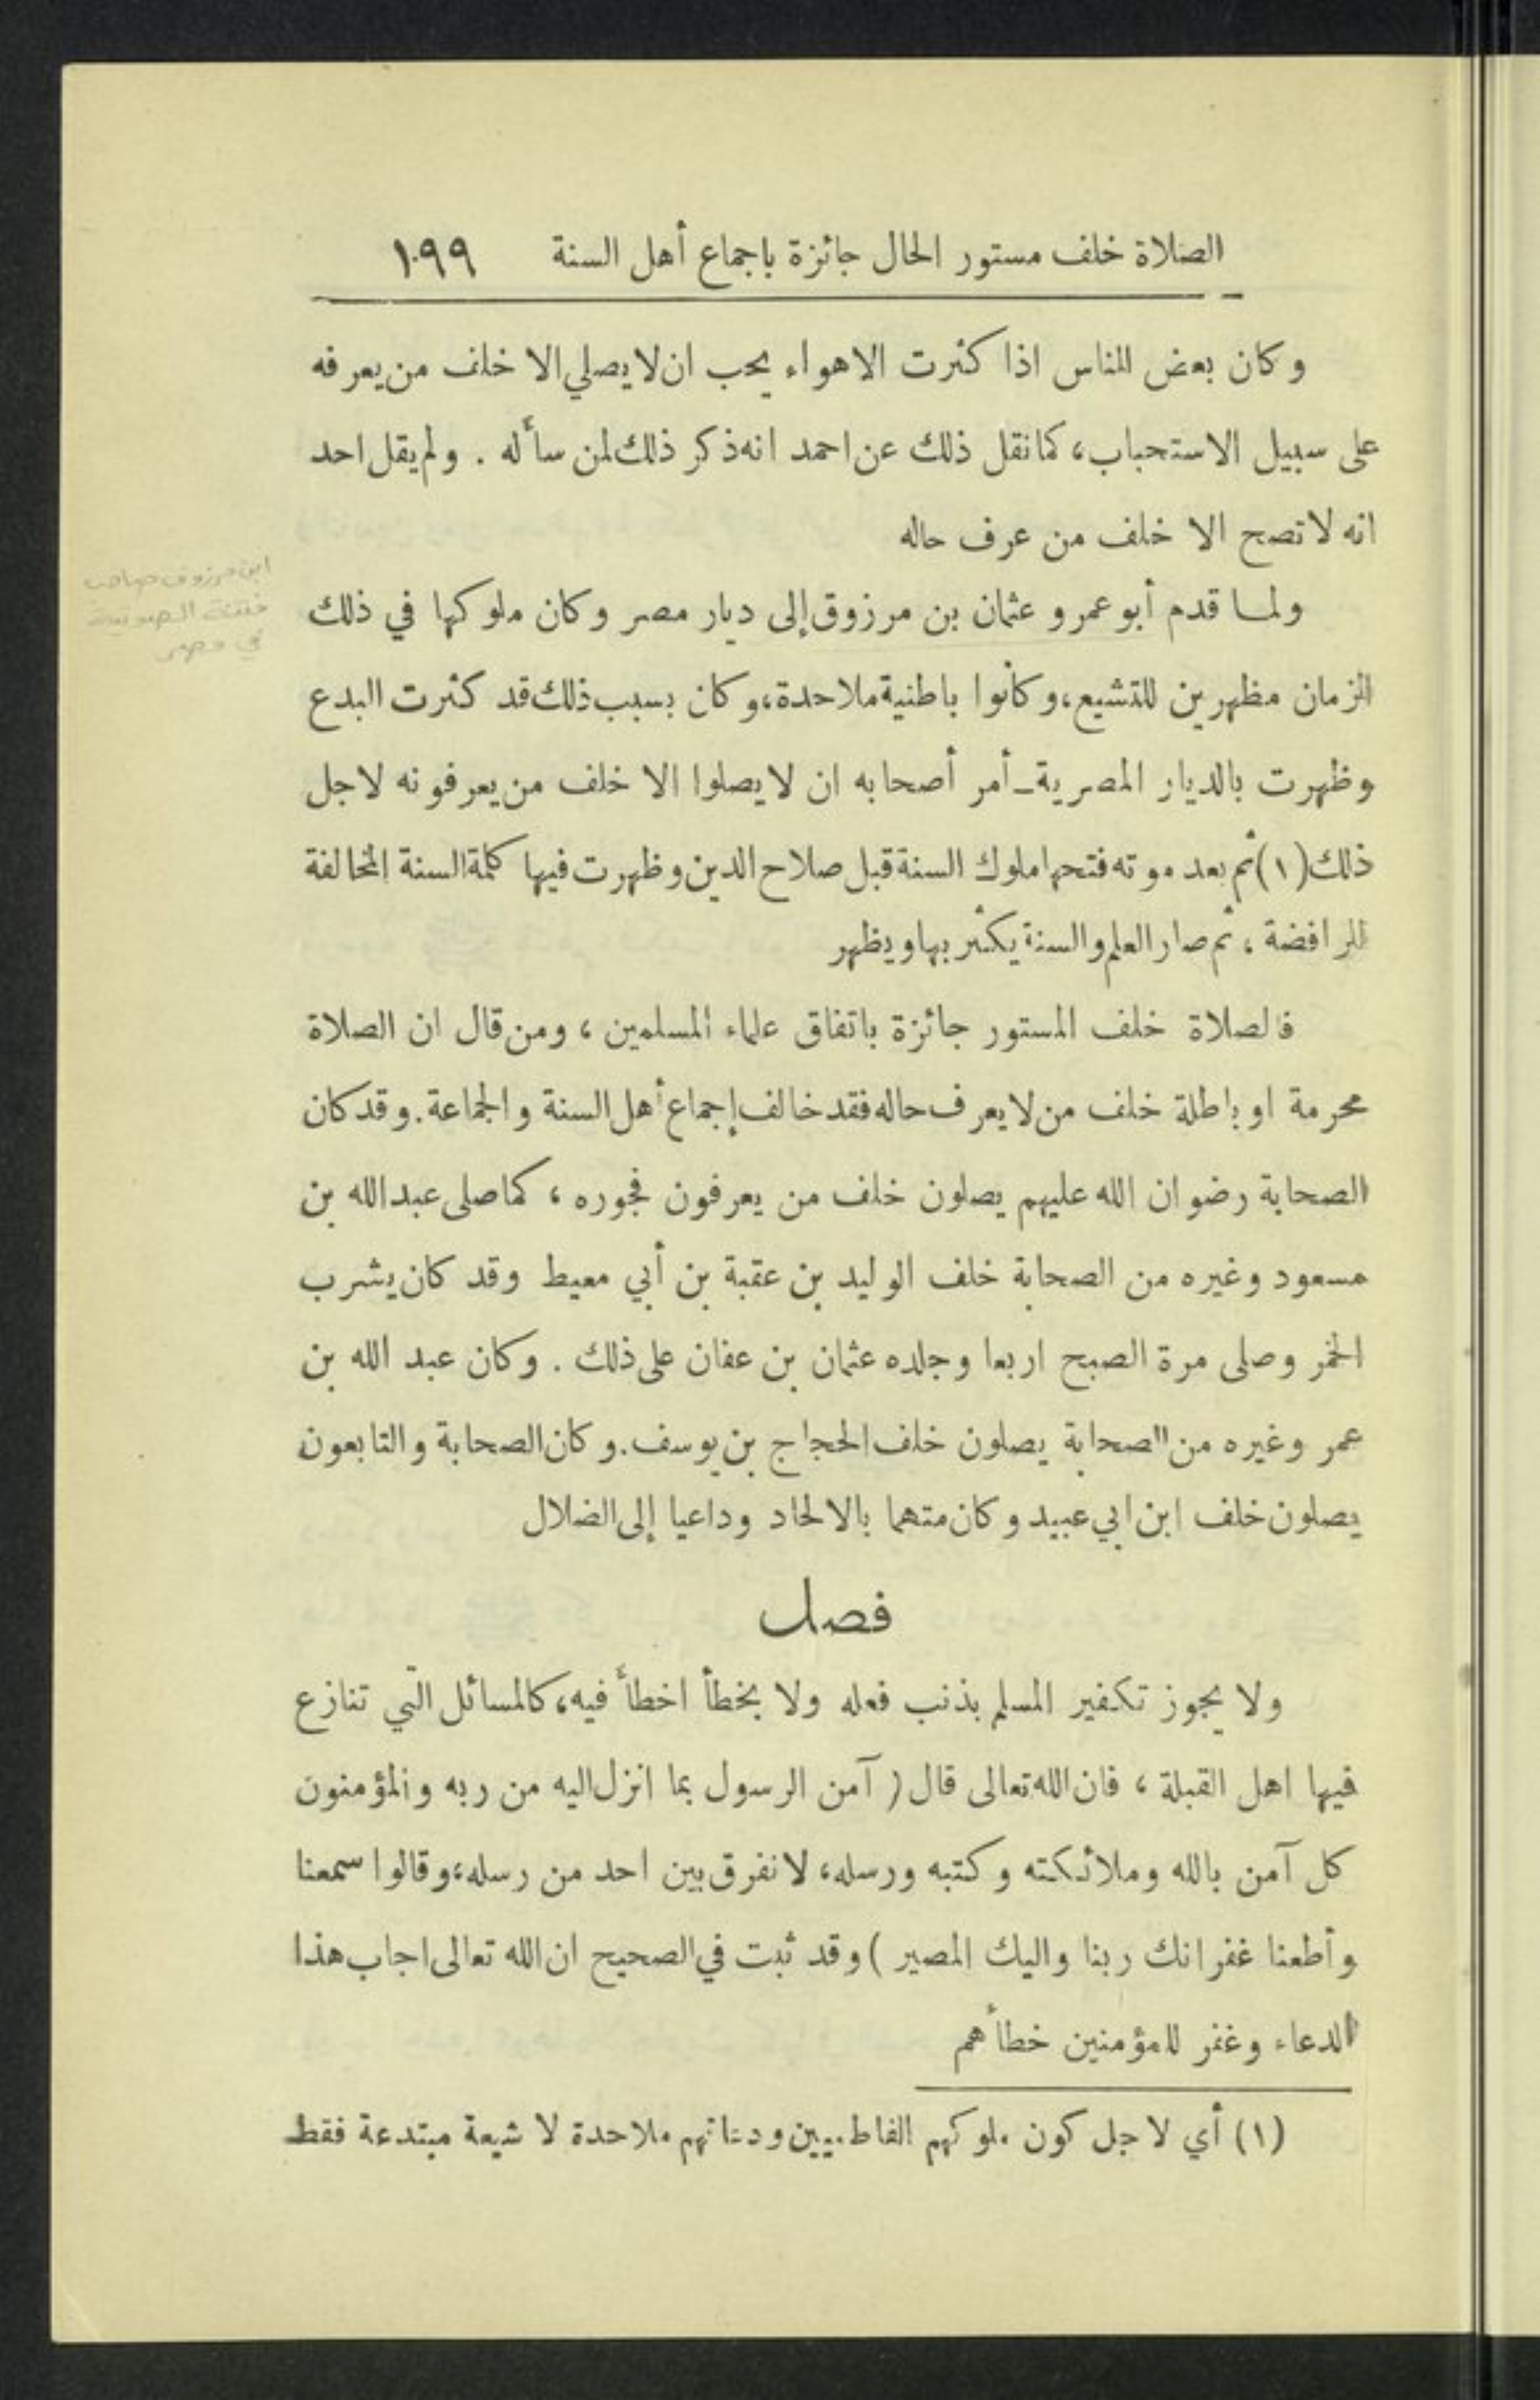 الصلاة خلف مستور الحال جائزة باجماع أهل السنة ١٩٩
وكان بعض الناس اذا كثرت الاهواء يحب ان لا يصلي الا خلف من يعرفه
على سبيل الاستحباب، كما نقل ذلك عن احمد انه ذكر ذلك لمن سأله . ولم يقل احد
انه لا تصح الا خلف من عرف حاله
ولما قدم أبو عمرو عثمان بن مرزوق إلى ديار مصر وكان ملوكها في ذلك
الزمان مظهرين للتشيع، وكانوا باطنية ملاحدة، وكان بسبب ذلك قد كثرت البدع
وظهرت بالديار المصرية ـ أمر أصحابه ان لا يصلوا الا خلف من يعرفونه لاجل
ذلك (١) ثم بعد موته فتحها ملوك السنة قبل صلاح الدين وظهرت فيها كلمة السنة المخالفة
للرافضة ، ثم صار العلم والسنة يكثر بها ويظهر
فالصلاة خلف المستور جائزة باتفاق علماء المسلمين ، ومن قال ان الصلاة
محرمة او باطلة خلف من لا يعرف حاله فقد خالف إجماع أهل السنة والجماعة. وقد كان
الصحابة رضوان الله عليهم يصلون خلف من يعرفون فجوره ، كما صلى عبد الله بن
مسعود وغيره من الصحابة خلف الوليد بن عقبة بن أبي معيط وقد كان يشرب
الخمر وصلى مرة الصبح اربعا وجلده عثمان بن عفان على ذلك . وكان عبد الله بن
عمر وغيره من الصحابة يصلون خلف الحجاج بن يوسف. وكان الصحابة والتابعون
يصلون خلف ابن ابي عبيد وكان متهما بالالحاد وداعيا إلى الضلال
فصل
ولا يجوز تكفير المسلم بذنب فعله ولا بخطأ اخطأ فيه، كالمسائل التي تنازع
فيها اهل القبلة ، فان الله تعالى قال ( آمن الرسول بما انزل اليه من ربه والمؤمنون
كل آمن بالله وملائكته وكتبه ورسله، لا نفرق بين احد من رسله، وقالوا سمعنا
وأطعنا غفرانك ربنا واليك المصير ) وقد ثبت في الصحيح ان الله تعالى اجاب هذا
الدعاء وغفر للمؤمنين خطأهم
(١) أي لاجل كون ملوكهم الفاطميين ودعاتهم ملاحدة لا شيعة مبتدعة فقط
ابن مرزوق صاحب
الصوفية
في مصر